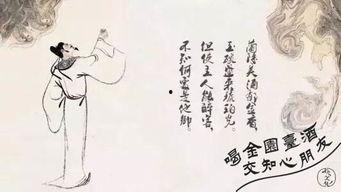 蘭陵美酒郁金香
玉碗盛來琥珀光
但使主人能醉客
不知何處是他鄉
喝金團臺酒
交知心朋友